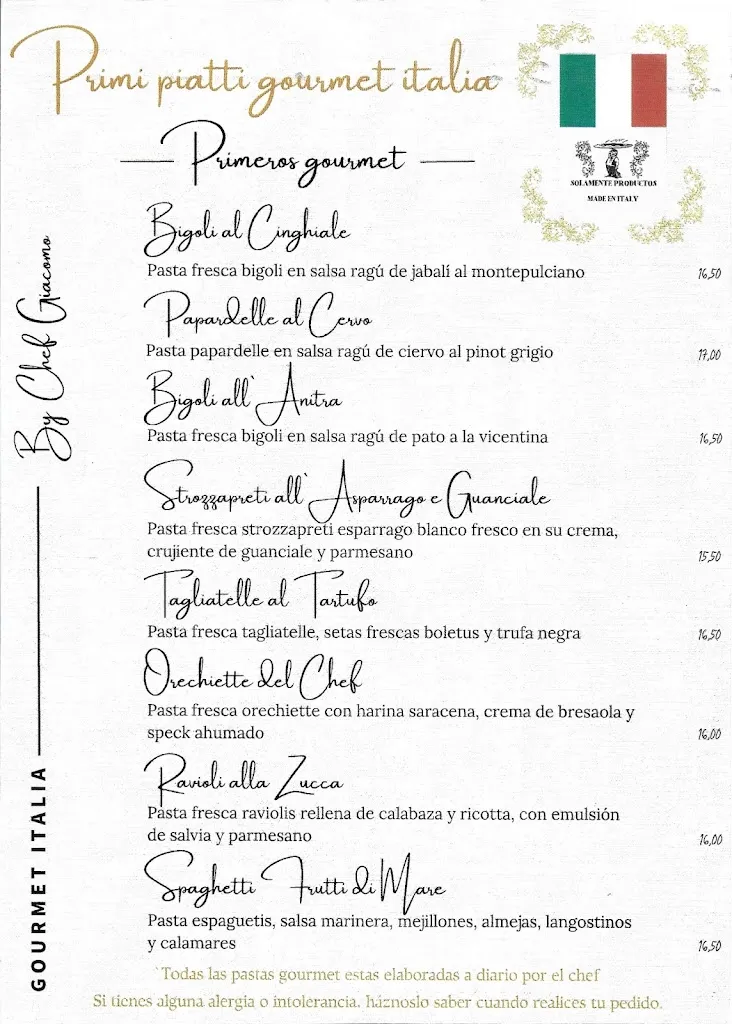 Primi piatti gourmet italia
SOLAMENTE PRODUCTOS
MADE EN ITALY
Primeros gourmet
Bigoli al Cinghiale
Pasta fresca bigoli en salsa ragú de jabalí al montepulciano 16,50
Papardelle al Cervo
Pasta papardelle en salsa ragú de ciervo al pinot grigio 17,00
Bigoli all` Anitra
Pasta fresca bigoli en salsa ragú de pato a la vicentina 16,50
Strozzapreti all` Asparrago e Guanciale
Pasta fresca strozzapreti esparrago blanco fresco en su crema,
crujiente de guanciale y parmesano 15,50
Tagliatelle al Tartufo
Pasta fresca tagliatelle, setas frescas boletus y trufa negra 16,50
Orechiette del Chef
Pasta fresca orechiette con harina saracena, crema de bresaola y
speck ahumado 16,00
Ravioli alla Zucca
Pasta fresca raviolis rellena de calabaza y ricotta, con emulsión
de salvia y parmesano 16,00
Spaghetti Frutti di Mare
Pasta espaguetis, salsa marinera, mejillones, almejas, langostinos
y calamares 16,50
`Todas las pastas gourmet estas elaboradas a diario por el chef
Si tienes alguna alergia o intolerancia, háznoslo saber cuando realices tu pedido.
By Chef Giacomo
GOURMET ITALIA